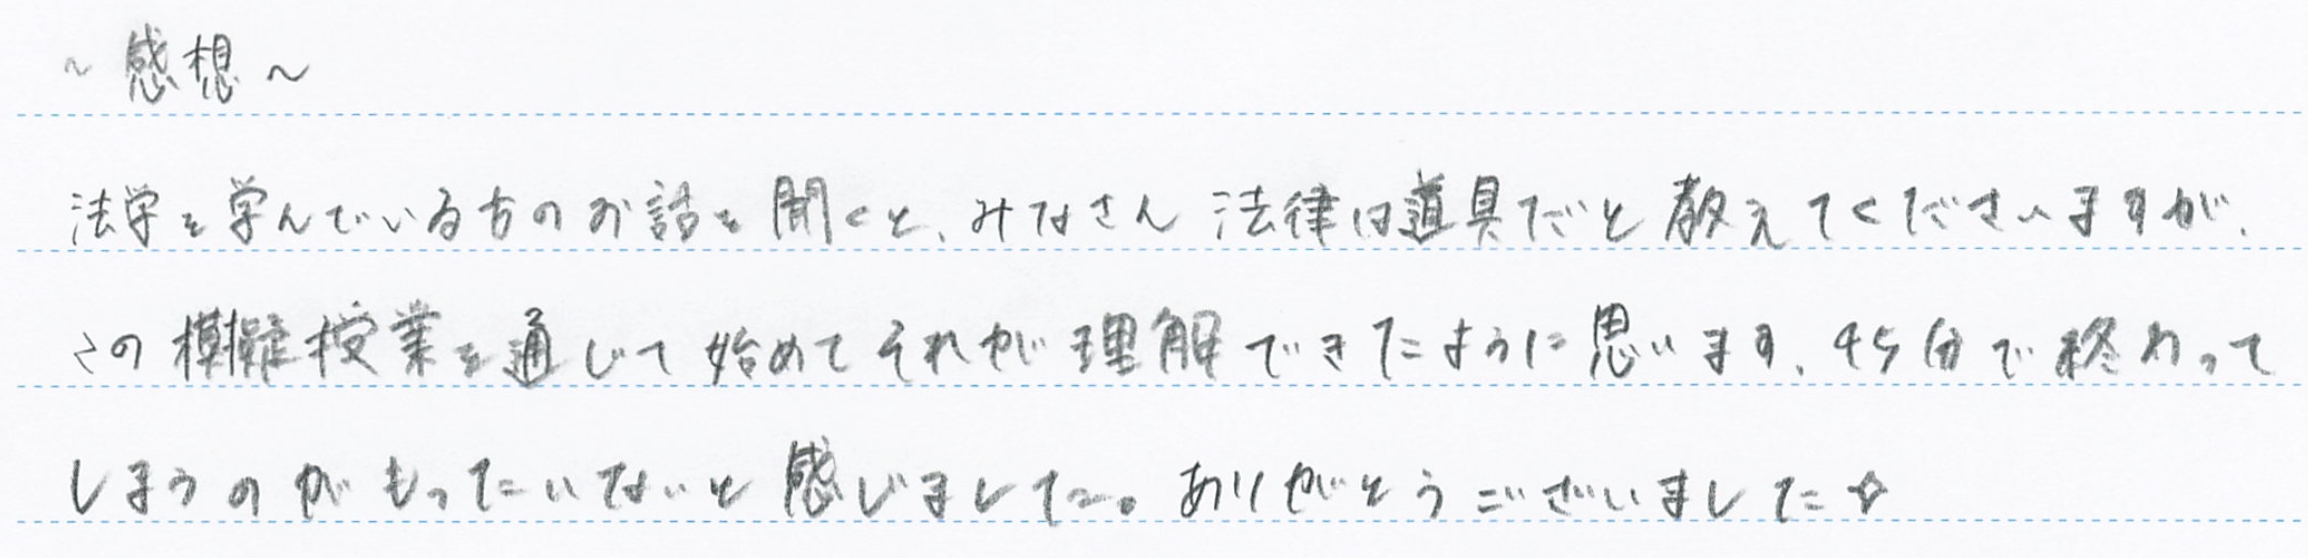 ～感想～
法学を学んでいる方のお話を聞くと、みなさん法律は道具だと教えてくださいますが、
この模擬授業を通じて始めてそれが理解できたように思います、45分で終わって
しまうのがもったいないと感じました。ありがとうございました☆